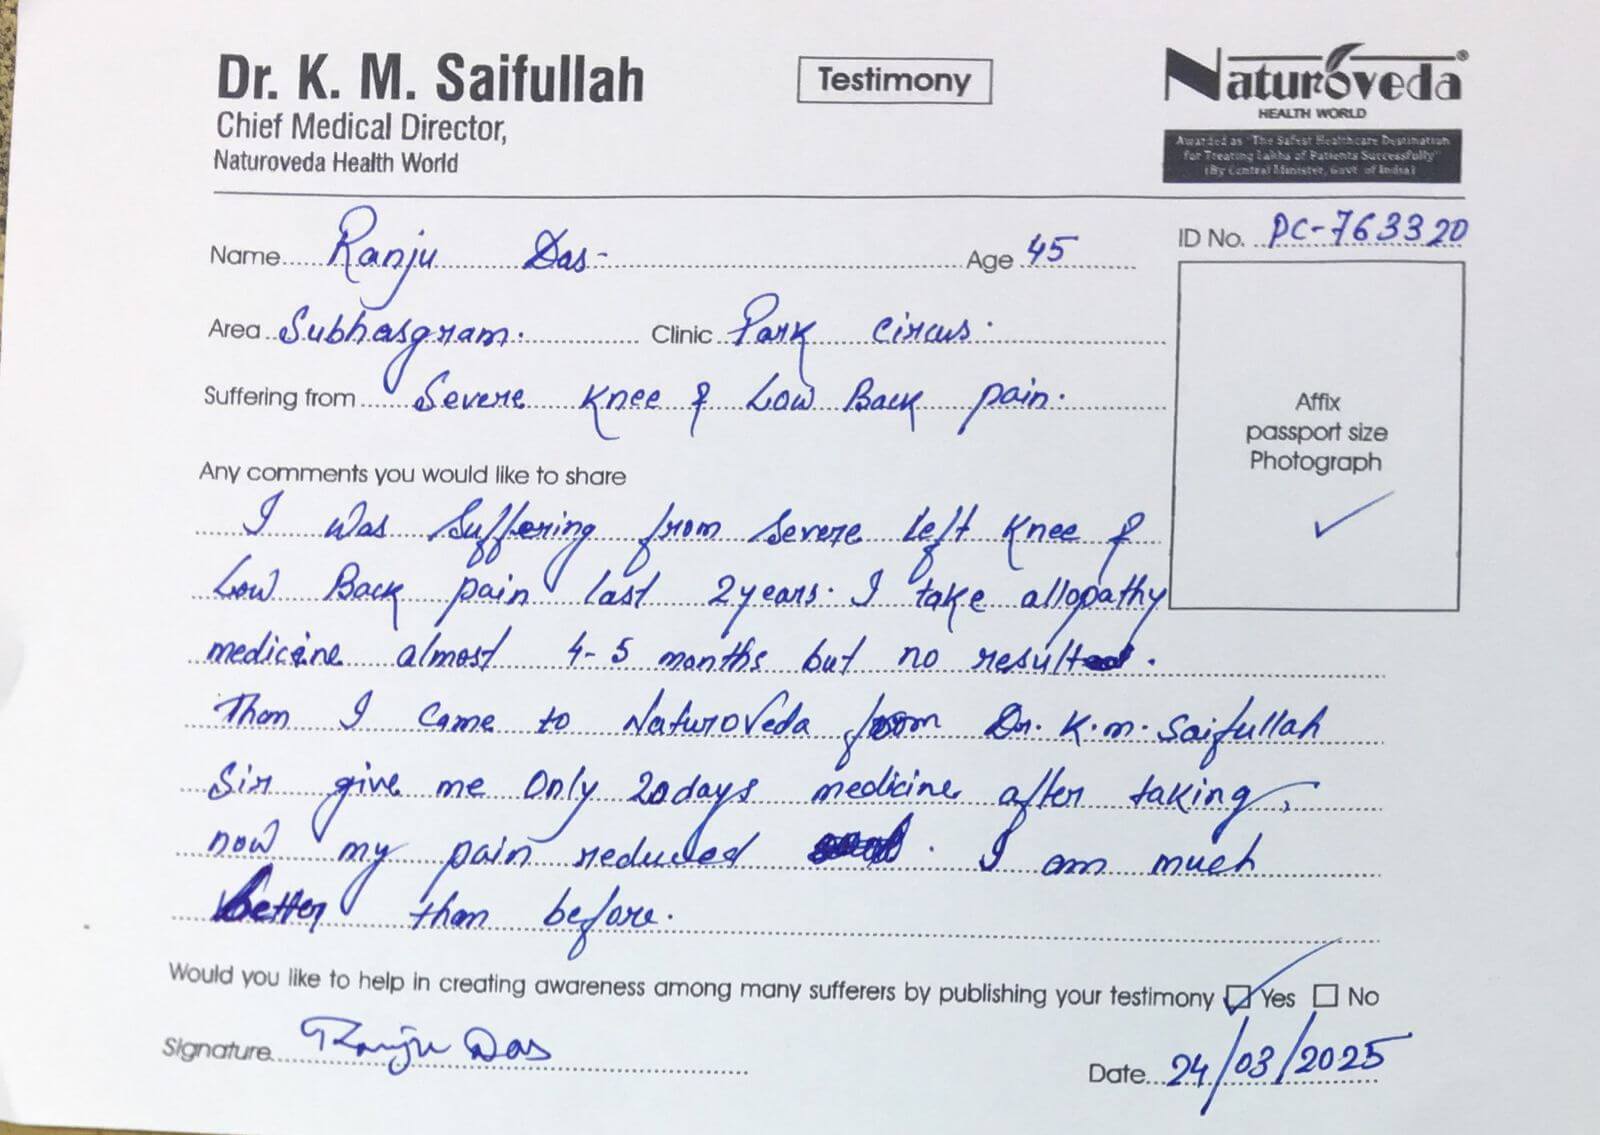 Dr. K. M. Saifullah
Chief Medical Director,
Naturoveda Health World
Testimony
Naturoveda®
HEALTH WORLD
Awarded as "The Safest Healthcare Destination
for Treating Lakhs of Patients Successfully"
(By Central Minister, Govt. of India)
Name Ranju Das- Age 45
ID No. PC-763320
Area Subhasgram. Clinic Park Circus.
Suffering from Severe Knee & Low Back pain.
Affix
passport size
Photograph
Any comments you would like to share
I was suffering from severe left Knee &
Low Back pain last 2years. I take allopathy
medicine almost 4-5 months but no result.
Then I came to NaturoVeda from Dr. K.m. Saifullah
Sir give me only 20days medicine after taking,
now my pain reduced . I am much
better than before.
Would you like to help in creating awareness among many sufferers by publishing your testimony Yes No
Signature Ranju Das
Date 24/03/2025